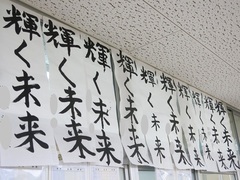 輝く未来
輝く未来
輝く未来
輝く未来
輝く未来
輝く未来
輝く未来
輝く未来
輝く未来
輝く未来